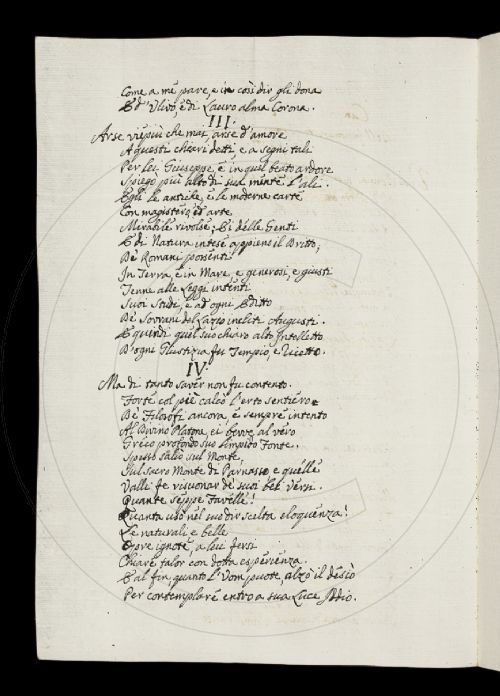 Come a me pare, e in così dir gli dona
E d'Ulivo, e di Lauro alma Corona.
III.
Arse viepiù che mai, arse d'amore
A questi chiari detti e a segni tali
Per Lei Giuseppe, e in quel beato ardore
Spiegò più alto di sua mente l'ali.
Egli le antiche, e le moderne carte
Con magistero, ed arte
Mirabile rivolse; Ei delle Genti
E di Natura intese appieno il Dritto;
De' Romani possenti
In Terra, e in Mare, e generosi, e giusti
Tenne alle Leggi intenti
Suoi Studi, e ad ogni Editto
De' Sovrani del Lazio incliti Augusti.
E quindi quel suo chiaro alto Intelletto
D'ogni Giustizia fu Tempio, e Ricetto.
IV.
Ma di tanto saver non fu contento.
Forte col piè calcò l'erto sentiero
De' Filosofi ancora, e sempre intento
Al Divino Platone, ei bevve al vero
Greco profondo suo limpido Fonte.
Spesso salìo sul Monte,
Sul sacro Monte di Parnasso e quelle
Valli fe risuonar de' suoi bei versi.
Quante seppe Favelle!
Quanta usò nel suo dir scelta eloquenza!
Le naturali e belle
Opre ignote, a lui fersi
Chiare talor con dotta esperienza.
E al fin, quanto l'Uom puote, alzò il desìo
Per contemplare entro a sua Luce Iddio.